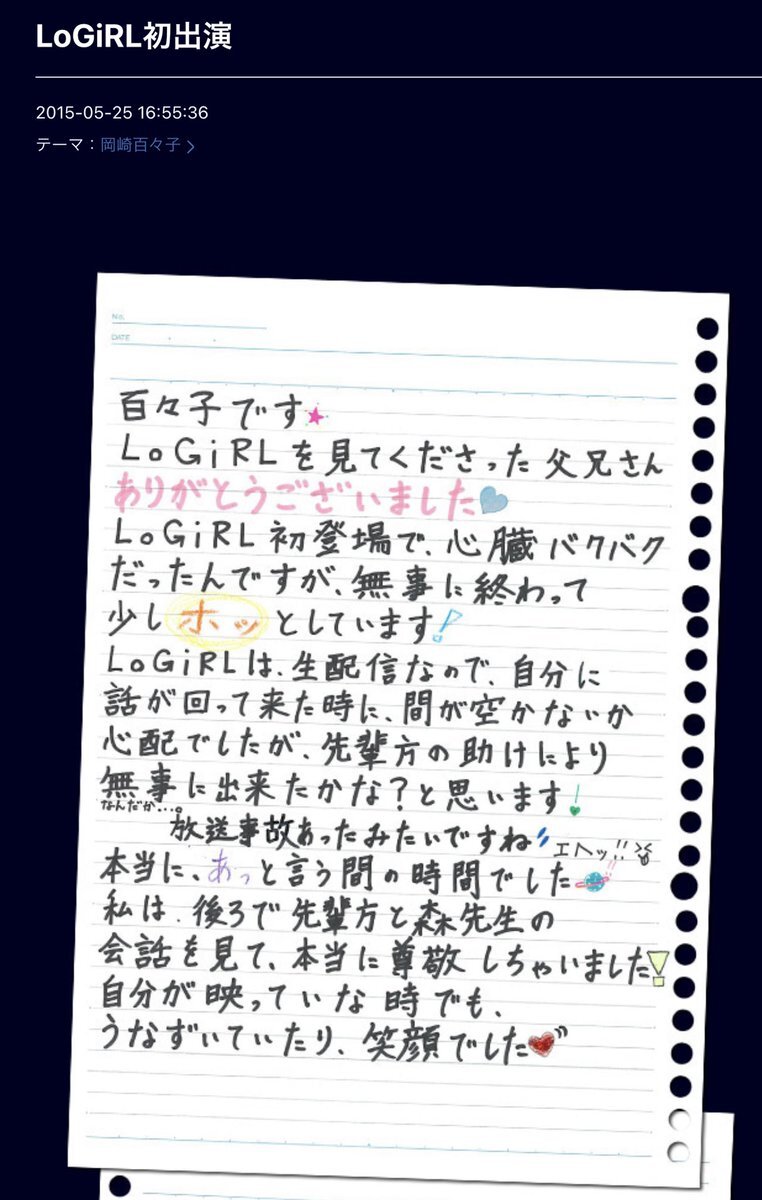 LoGiRL初出演
2015-05-25 16:55:36
テーマ：岡崎百々子
No.
DATE
百々子です
LoGiRLを見てくださった父兄さん
ありがとうございました
LoGiRL初登場で、心臓バクバク
だったんですが、無事に終わって
少しホッとしています!
LoGiRLは、生配信なので、自分に
話が回って来た時に、間が空かないか
心配でしたが、先輩方の助けにより
無事に出来たかな?と思います!
なんだか…。
放送事故あったみたいですね
エヘッ!!
本当に、あっと言う間の時間でした
私は、後ろで先輩方と森先生の
会話を見て、本当に尊敬しちゃいました!
自分が映っていな時でも、
うなずいていたり、笑顔でした